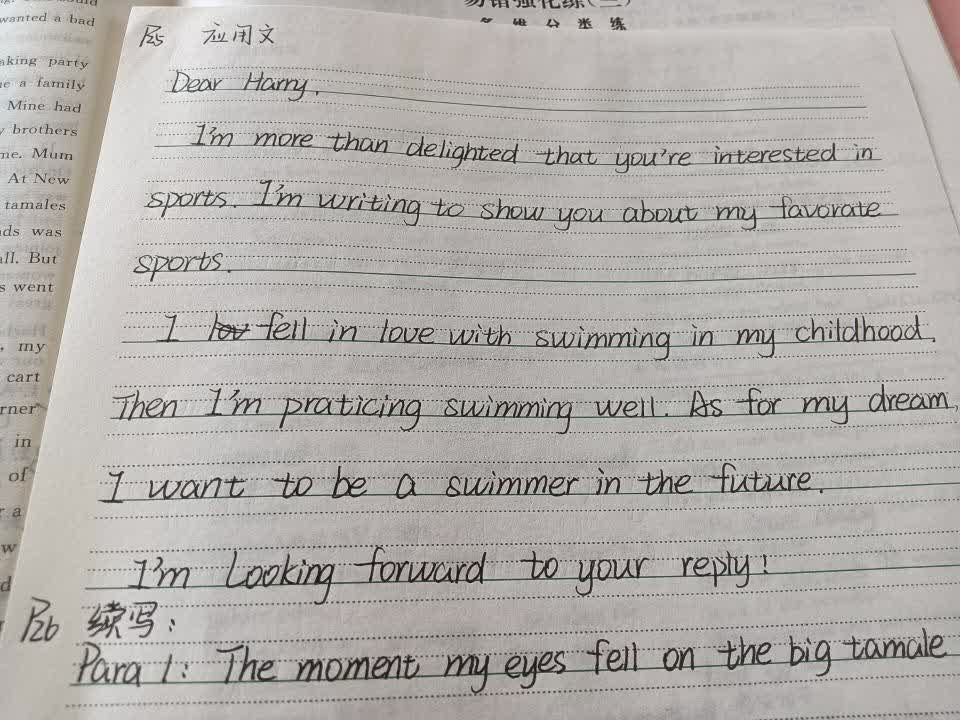 wanted a bad
aking party
e a family
Mine had
y brothers
me. Mum
At New
tamales
ds was
all. But
s went
, my
cart
rner
in
of
r a
w
d
P25 应用文
Dear Harry,
I'm more than delighted that you're interested in
sports. I'm writing to show you about my favorate
sports.
I lov fell in love with swimming in my childhood.
Then I'm praticing swimming well. As for my dream,
I want to be a swimmer in the future.
I'm Looking forward to your reply!
P26 续写:
Para 1: The moment my eyes fell on the big tamale